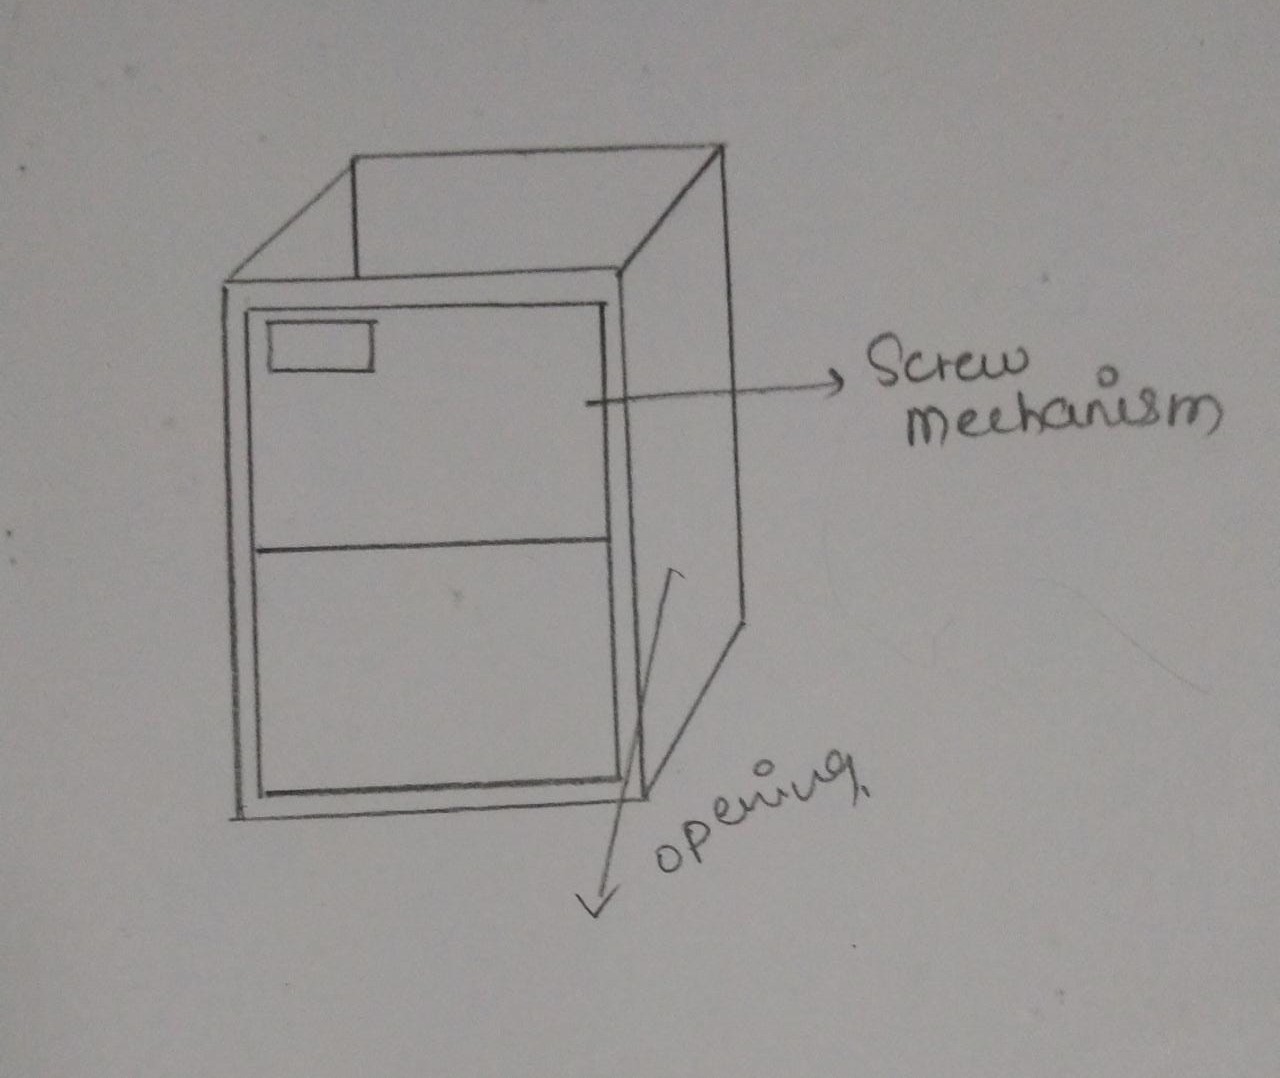 Screw
mechanism
opening.